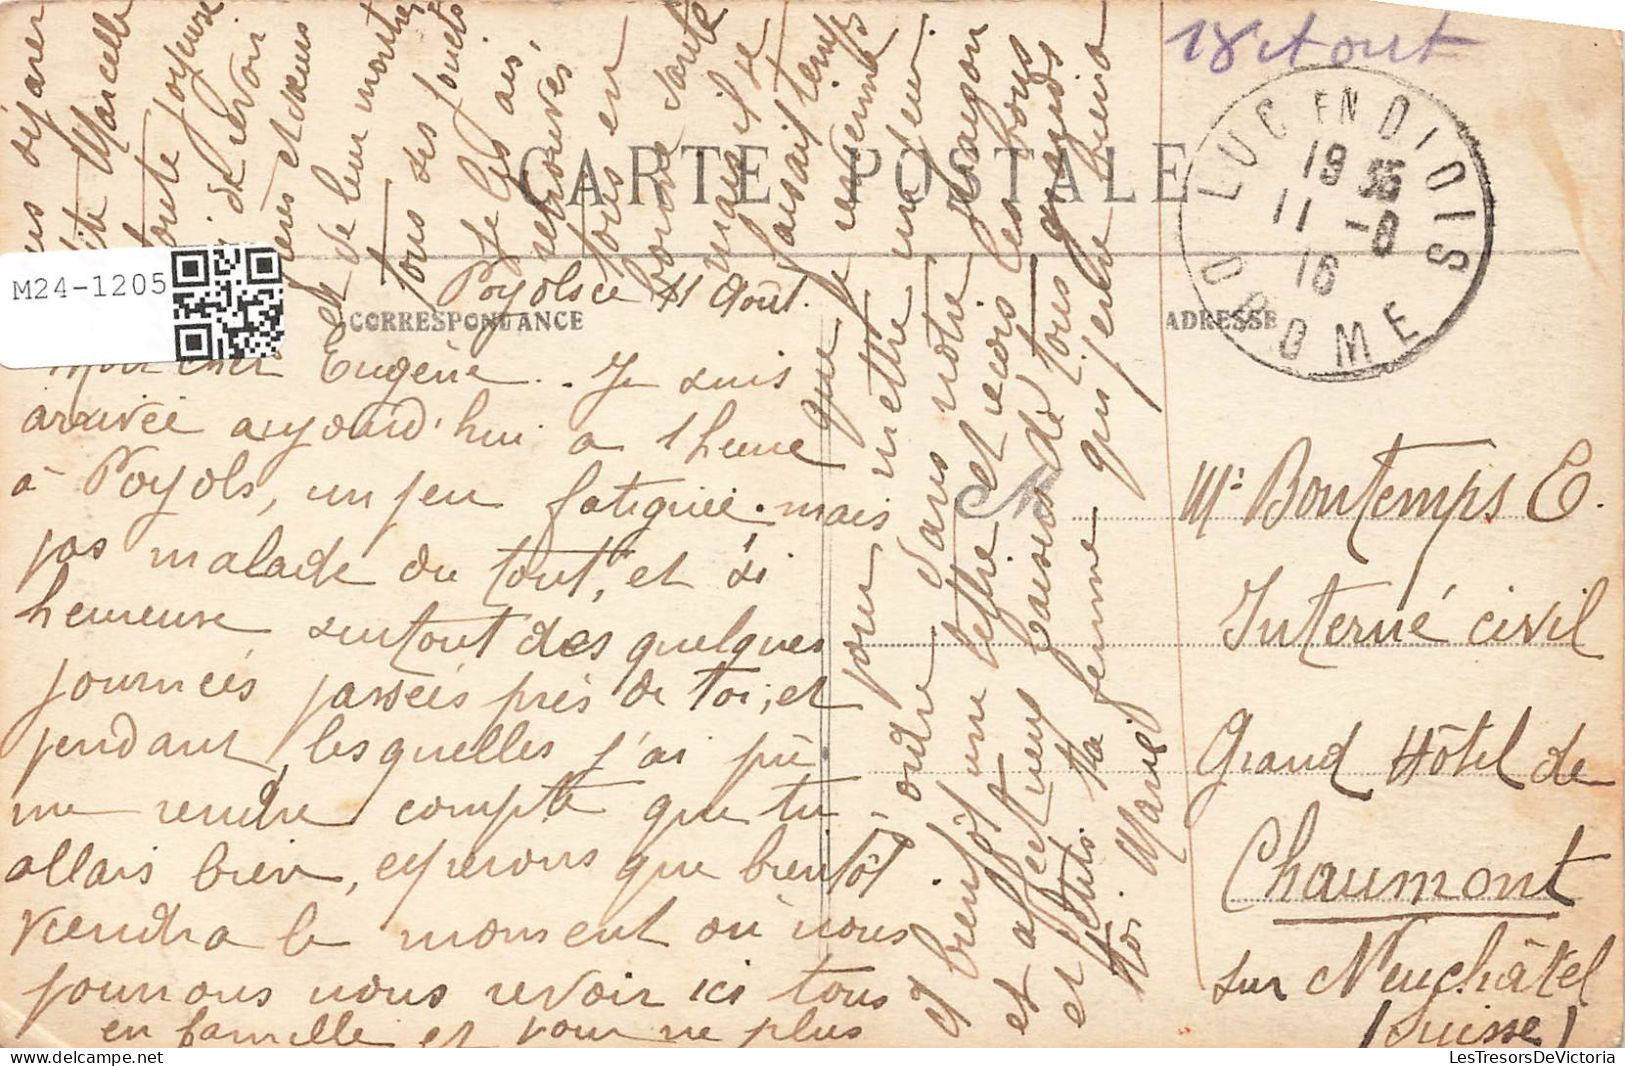 18 Aout
CARTE POSTALE
CORRESPONDANCE
ADRESSE
LUC EN DIOIS
18 35
11 -8
16
DROME
M24-1205
Poyols ce 11 Août.
Mon cher Eugène. Je suis
arrivée aujourd'hui a 1 heure
à Poyols, un peu fatiguée. mais
pas malade du tout, et si
heureuse surtout des quelques
journées passées près de toi, et
pendant lesquelles j'ai pû
me rendre compte que tu
allais bien, esperons que bientôt
viendra le moment où nous
pourrons nous revoir ici tous
en famille et pour ne plus
déjaner
Marcelle
toute joyeuse
de revoir
et dans
de leur montrer
tous ses jouets
Je les ai,
retrouvés
tous en
bonne santé
mais il se
faisait temps
que je revienne
pour mettre un peu
d'ordre dans notre maison
et bientôt une lettre et reçois les bons
et affectueux baisers de tous grands
et petits ta femme qui pense bien a
toi. Marie
Mr Bontemps E.
Interné civil
Grand Hôtel de
Chaumont
sur Neuchâtel
(Suisse)
LesTresorsDeVictoria